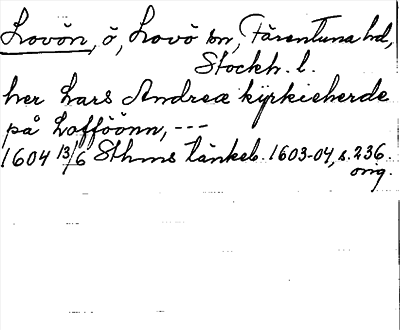 Lovön, ö, Lovö sn, Färentuna hd,
Stockh. l.
her Lars Andreæ kyrkieherde
på Lofföönn, ---
1604 13/6 Sthms tänkeb. 1603-04, s. 236.
orig.